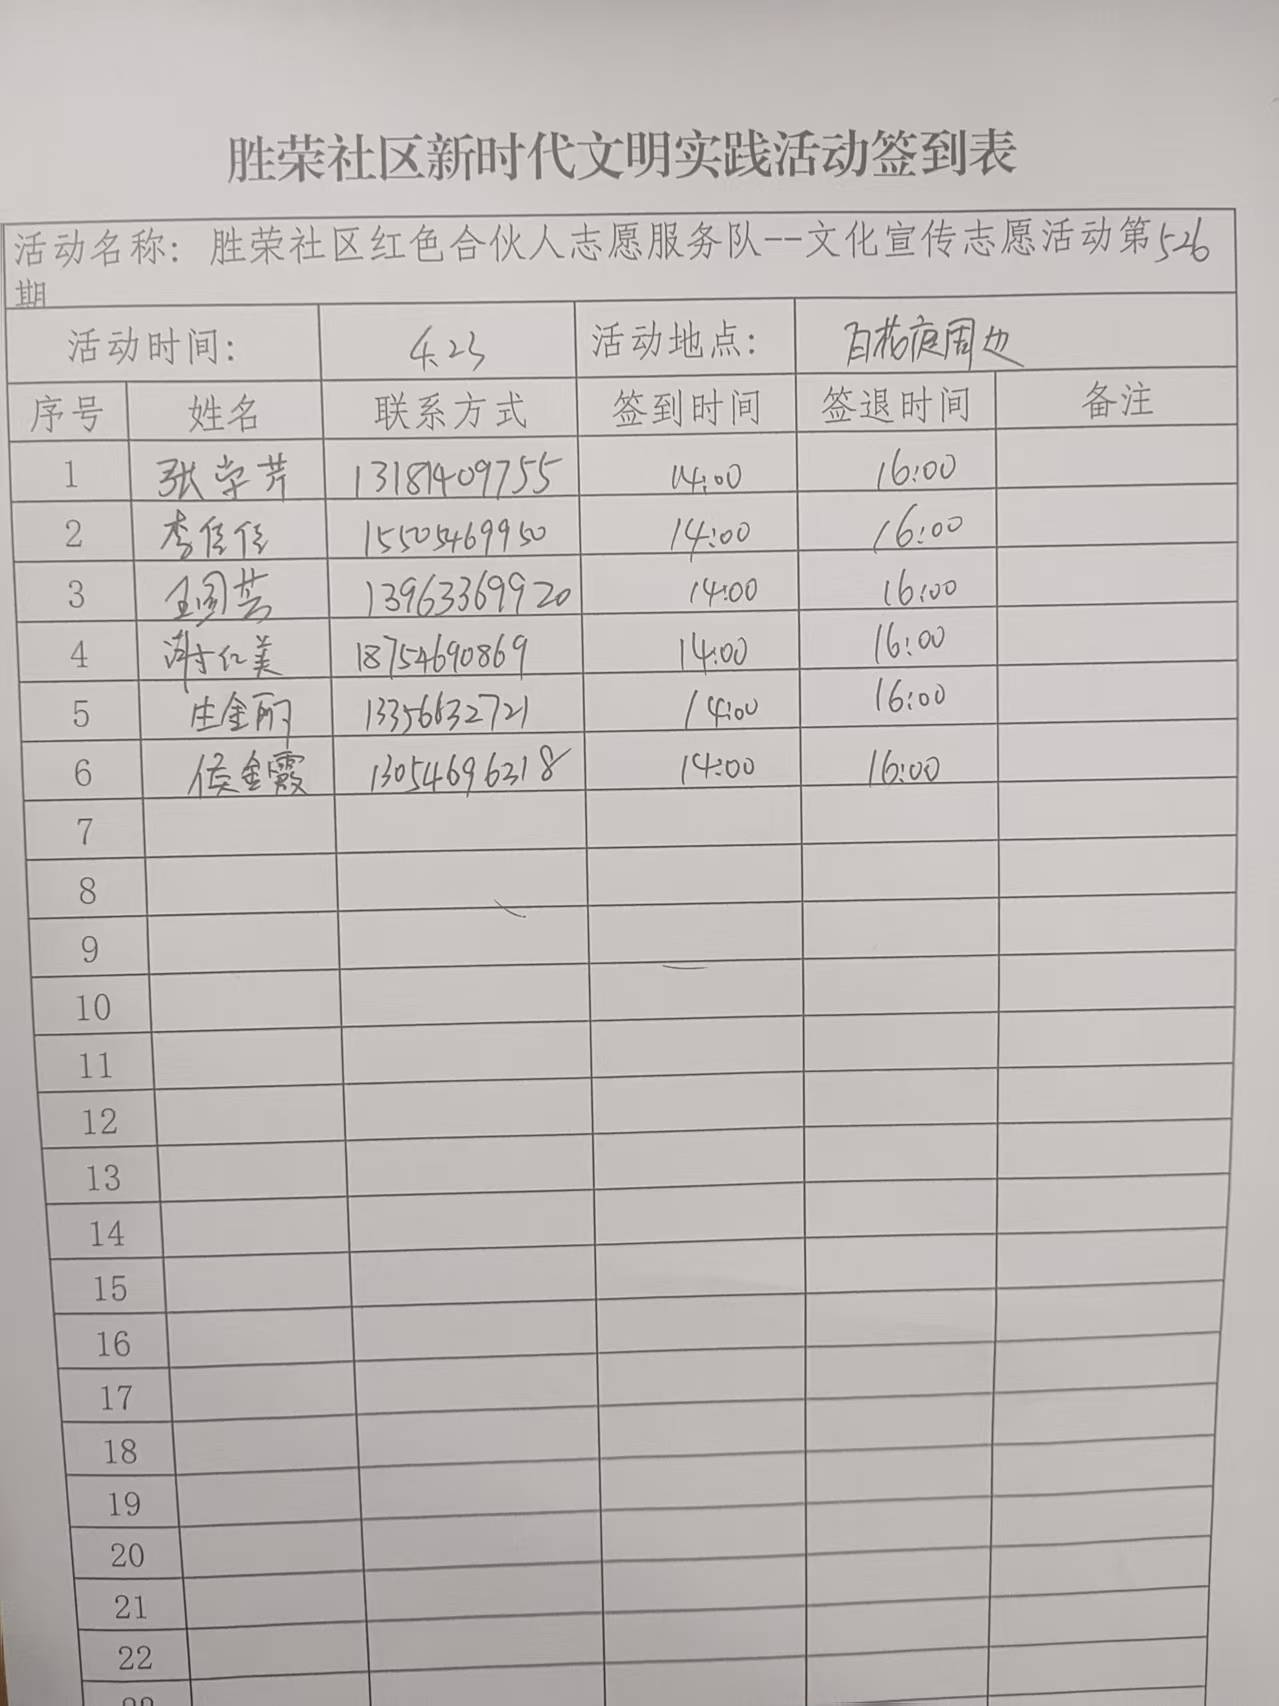 胜荣社区新时代文明实践活动签到表
活动名称: 胜荣社区红色合伙人志愿服务队--文化宣传志愿活动第526
期
活动时间: 4.23 活动地点: 百花庭周边
序号 姓名 联系方式 签到时间 签退时间 备注
1 张学芹 13181409755 14:00 16:00
2 李佳佳 15505469950 14:00 16:00
3 13963369920 14:00 16:00
4 谢仁美 18754690869 14:00 16:00
5 庄金丽 13356632721 14:00 16:00
6 侯金霞 13054696318 14:00 16:00
7
8
9
10
11
12
13
14
15
16
17
18
19
20
21
22